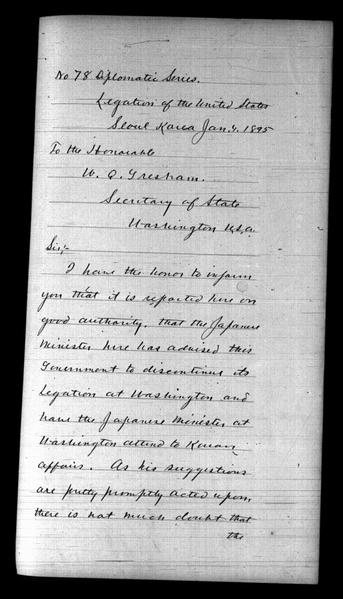 No 78 Diplomatic Series.
Legation of the United States
Seoul Korea Jan. 4. 1895
To the Honorable
W. Q. Gresham.
Secretary of State
Washington U.S.A.
Sir;-
I have the honor to inform
you that it is reported here on
good authority, that the Japanese
Minister here has advised this
Government to discontinue its
Legation at Washington and
have the Japanese Minister at
Washington attend to Korean
affairs. As his suggestions
are pretty promptly acted upon,
there is not much doubt that
the